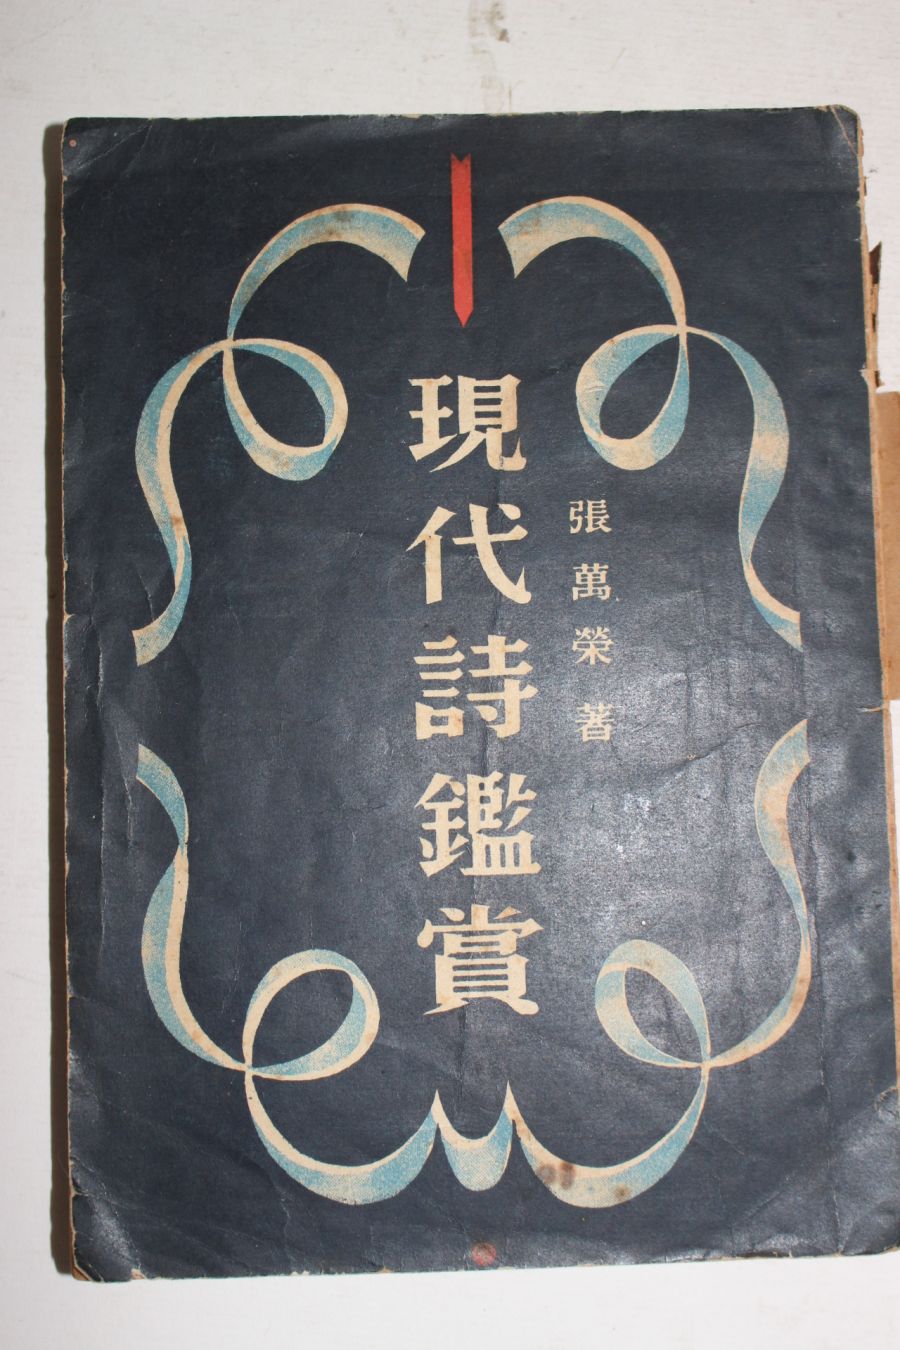 張萬榮 著
現代詩鑑賞